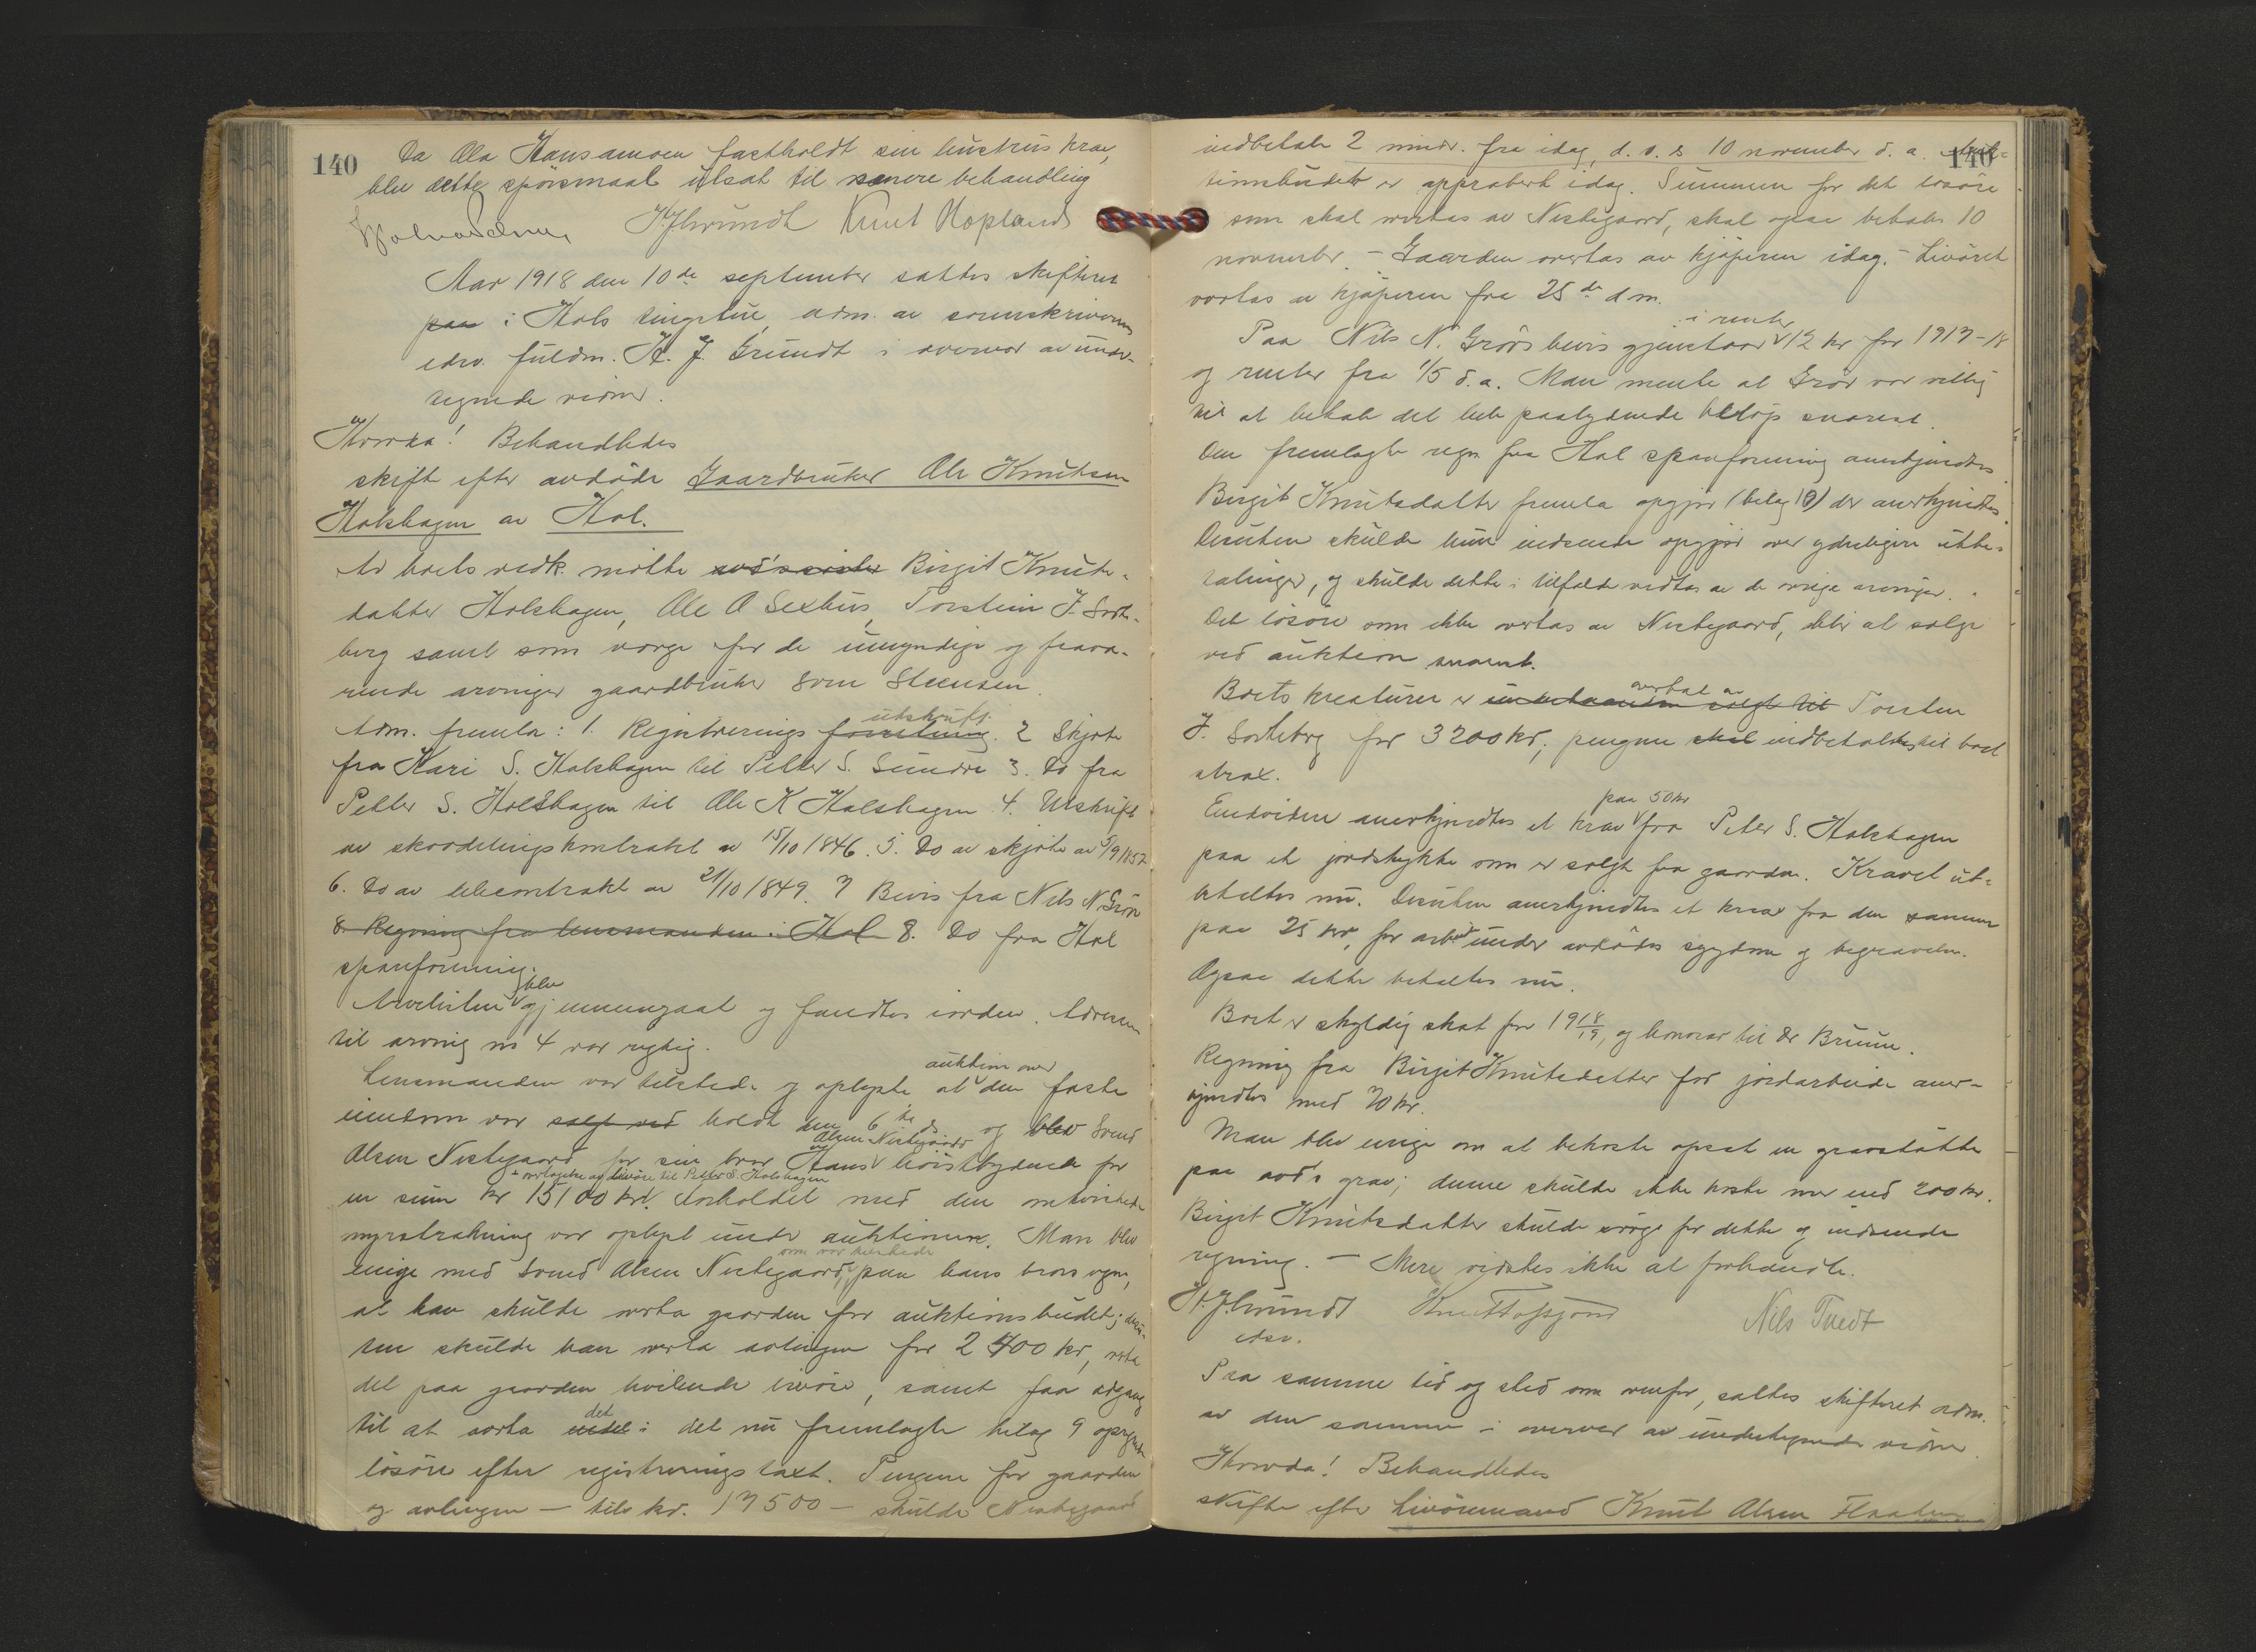 140
Da Ola Hansamoen fastholdt sin hustrus krav,
blev dette spörsmaal utsat til senere behandling
H.J.Grundt Knut Hopland
Aar 1918 den 10de september sattes skifteret
paa i Hols tingstue, adm. av sorenskriverens
edsv. fuldm. H. J. Grundt i overvær av under-
tegnede vidner.
Hvorda! Behandledes
skifte efter avdöde Gaardbruker Ole Knutsen
Holshagen av Hol.
Av boets vedk. mötte avd's söster Birgit Knuts-
datter Holshagen, Ole O Sexhus, Torstein J. Sorte-
berg samt som verge for de umyndige og fravæ-
rende arvinger gaardbruker Sven Steensen.
Adm. fremla: 1. Registrerings forretning utskrift. 2 Skjöte
fra Kari S. Holshagen til Petter S. Sundre 3. Do fra
Petter S. Holshagen til Ole K Holshagen 4. Utskrift
av skovdelingskontrakt av 15/10 1846. 5. Do av skjöte av 5/9 1852
6. Do av utkontrakt av 21/10 1849. 7 Bevis fra Nils N. Grön
8. Regning fra lensmanden i Hol 8. Do fra Hol
spareforening.
Arvelisten blev gjennemgaat og fandtes iorden. Adressen
til arving no 4 var rigtig.
Lensmanden var tilstede og oplyste at auktion over den faste
eiendom var solgt ved holdt den 6te ds og blev Svend
Olsen Nestegaard for sin bror Hans Olsen Nestegaard höistbydende for
en sum kr 15100 kr. + overtagelse av livöre til Petter S. Holshagen Forholdet med den omtvistede
myrstrækning var oplyst under auktionen. Man blev
enige med Svend Olsen Nestegaard, som var tilstede paa hans brors vegne,
at han skulde overta gaarden for auktionsbudet; desu-
ten skulde han overta avlingen for 2400 kr, overta
det paa gaarden hvilende livöre, samt faa adgang
til at overta endel det i det nu fremlagte bilag 9 opregnede
lösöre efter registreringstaxt. Pengene for gaarden
og avlingen — tils. kr. 17500 — skulde Nestegaard
140
indbetale 2 mndr. fra idag, d.v.s 10 november d.a. Auk-
tionsbudet er approbert idag. Summen for det lösöre
som skal overtas av Nestegaard, skal ogsaa betales 10
november. – Gaarden overtas av kjöperen idag. – Livöret
overtas av kjöperen fra 25de d m.
Paa Nils N. Gröns bevis gjenstaar i renter 12 kr for 1917-18
og renter fra 1/5 d.a. Man mente at Grön var villig
til at betale det hele paalydende belöp snarest.
Den fremlagte regn fra Hol spareforening anerkjendtes.
Birgit Knutsdatter fremla opgjör (bilag 10) der anerkjendtes.
Desuten skulde hun indsende opgjör over ydterligere utbe-
talinger, og skulde dette i tilfælde vedtas av de övrige arvinger.
Det lösöre som ikke overtas av Nestegaard, blir at sælge
ved auktion snarest.
Boets kreaturer er underhaanden solgt til overtat av Torsten
J. Sorteberg for 3200 kr; pengene skal indbetaltes til boet
strax.
Endvidere anerkjendtes et krav paa 50 kr fra Peter S. Holshagen
paa et jordstykke som er solgt fra gaarden. Kravet ut-
betaltes nu. Desuten anerkjendtes et krav fra den samme
paa 25 kr, for arbeide under avdödes sygdom og begravelse.
Ogsaa dette betaltes nu.
Boet er skyldig skat for 1918/19, og honorar til Dr Bruun.
Regning fra Birgit Knutsdatter for jordarbeide aner-
kjendtes med 70 kr.
Man blev enige om at bekoste opsat en gravstötte
paa avd's grav; denne skulde ikke koste mer end 200 kr.
Birgit Knutsdatter skulde sörge for dette og indsende
regning. — Mere vidstes ikke at forhandle.
H.J.Grundt Nils Tuedt
edsv.
Paa samme tid og sted som ovenfor, sattes skifteret adm.
av den samme i overvær av undertegnede vidner.
Hvorda! Behandledes
skifte efter Livöremand Knut Olsen Flaaten